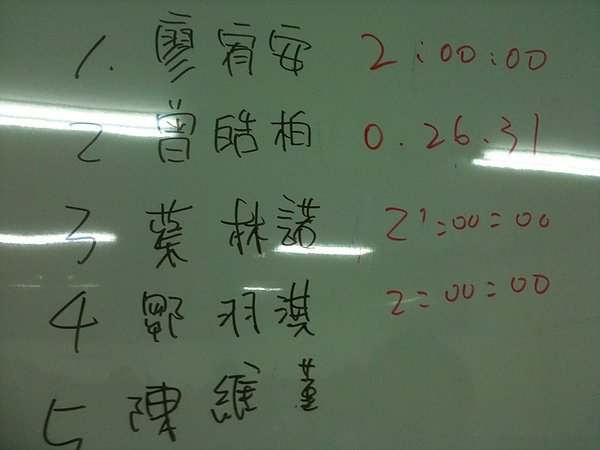 1. 廖宥安 2:00:00
2 曾皓柏 0.26.31
3 葉林諾 2':00:00
4 鄒羽淇 2:00:00
5 陳維菫